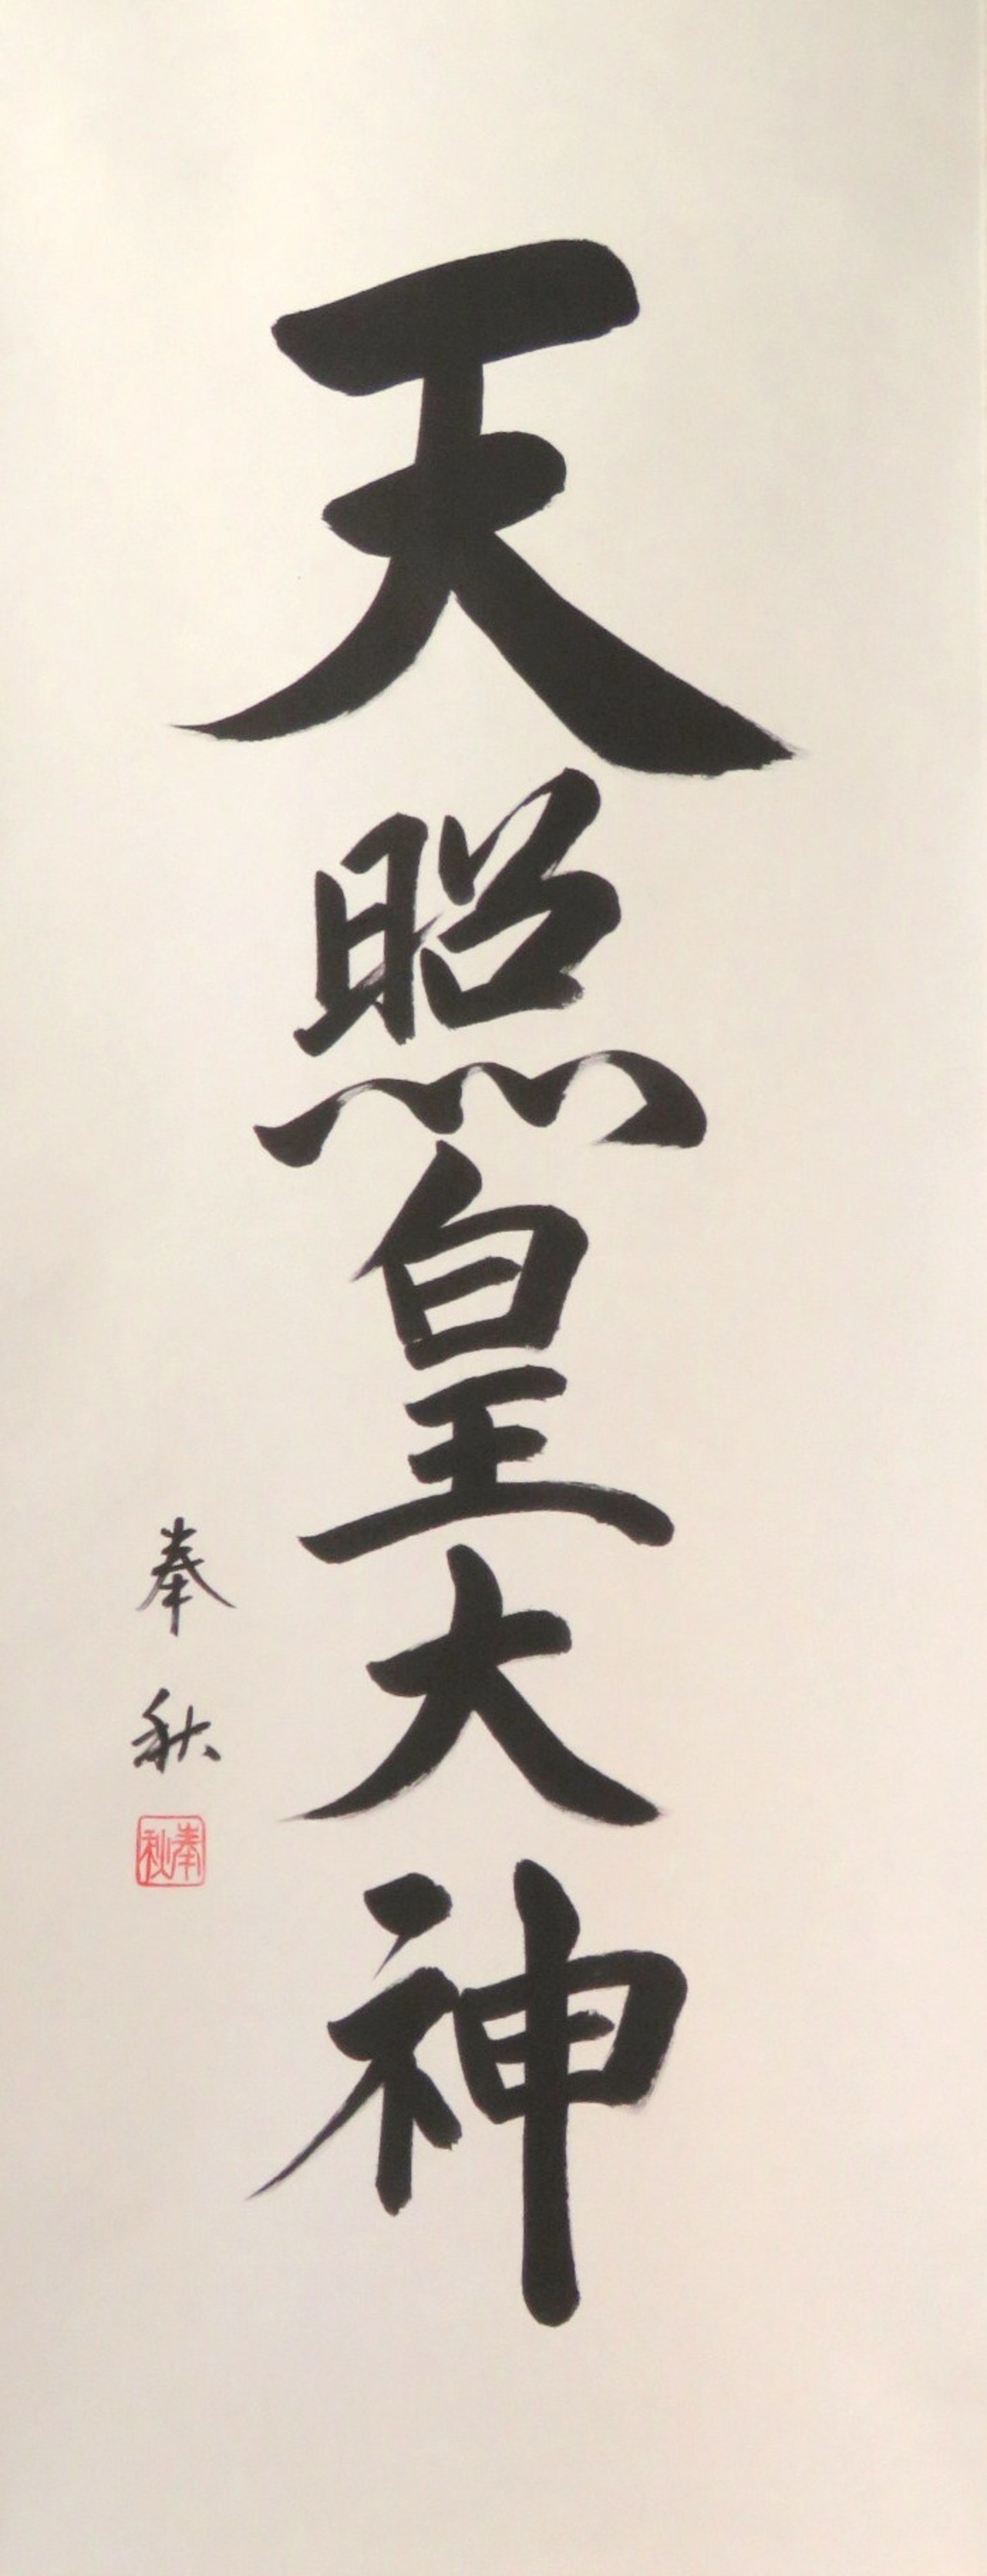 天照皇大神
奉秋
奉秋